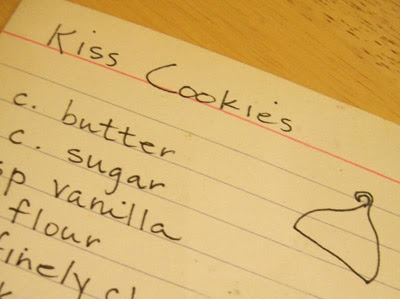 Kiss Cookies
c. butter
c. sugar
sp vanilla
flour
finely